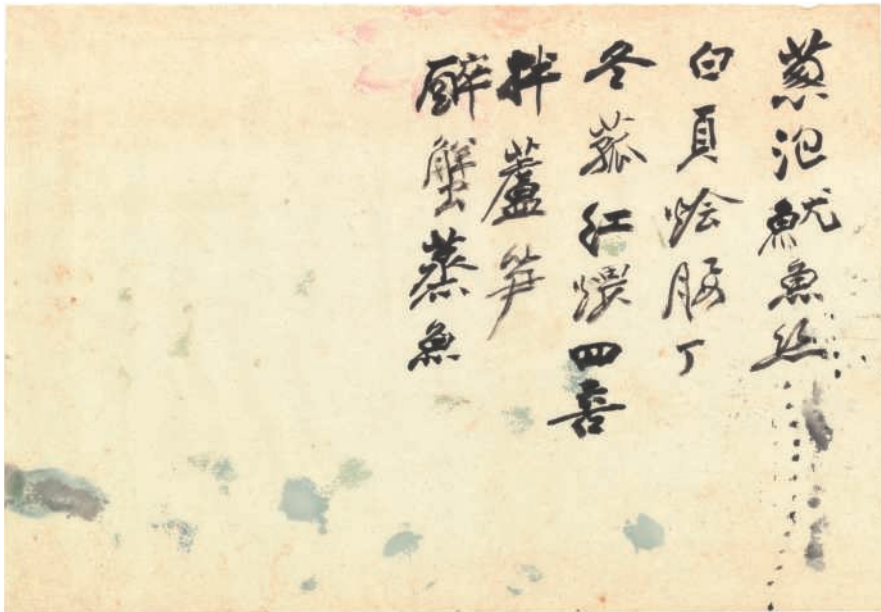 葱泡魷魚絲
白頁燴腰丁
冬菰紅煨四喜
拌蘆笋
醉蟹蒸魚